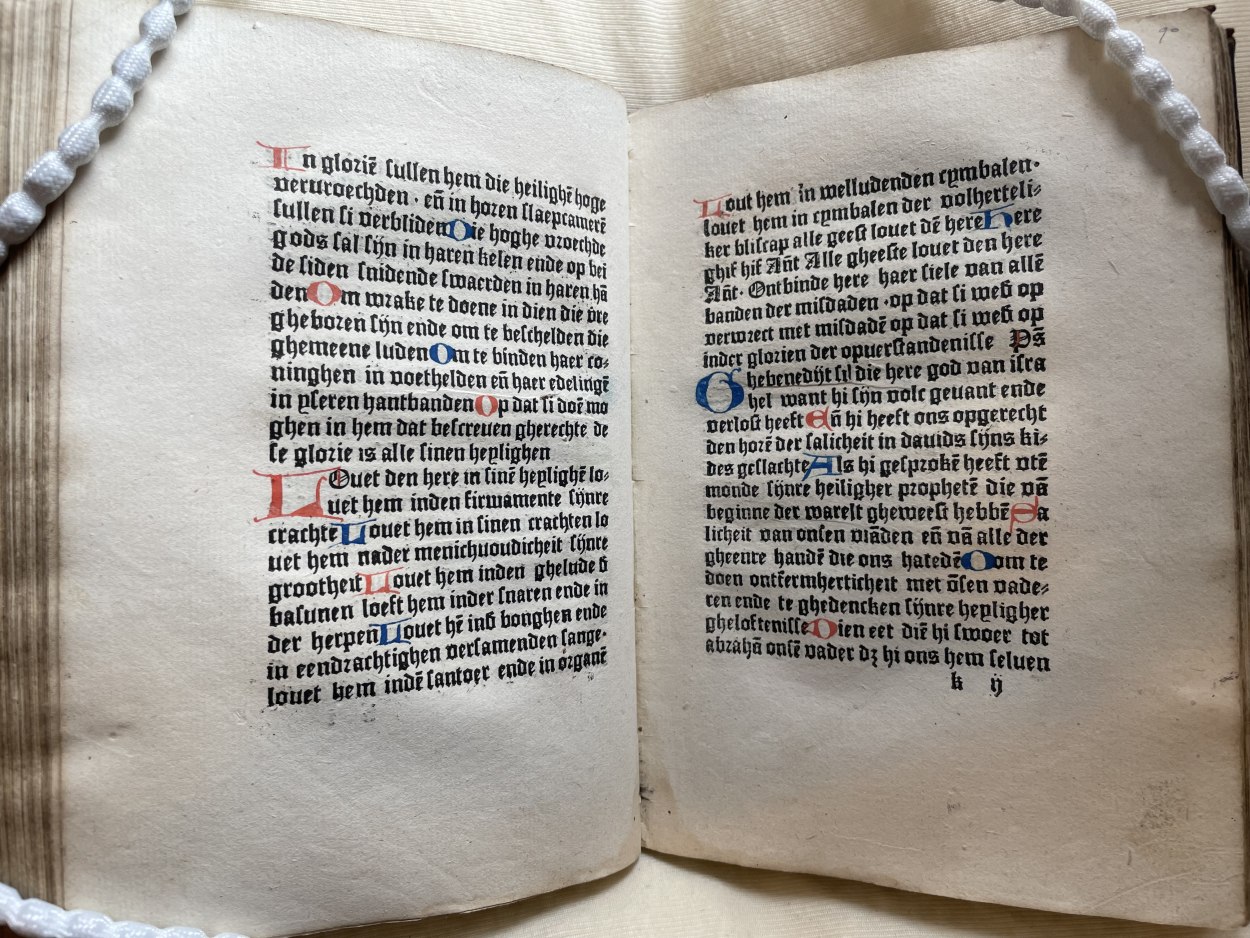 In gloriē sullen hem die heilighē hoge
veruroechden · eñ in horen slaepcamerē
sullen si verblidenDie hoghe vroechde
gods sal sijn in haren kelen ende op bei
de siden snidende swaerden in haren hā
denOm wrake te doene in dien die v̄re
gheboren sijn ende om te beschelden die
ghemeene ludenOm te binden haer co⸗
ninghen in voethelden eñ haer edelingē
in yseren hantbandenOp dat si doē mo
ghen in hem dat bescreuen gherechte de
se glorie is alle sinen heylighen
LOuet den here in sinē heylighē lo⸗
uet hem inden firwamente sijnre
crachtēLouet hem in sinen crachten lo
uet hem nader menichuoudicheit sijnre
grootheitLouet hem inden ghelude đ
basunen loeft hem inder snaren ende in
der herpenLouet hē inđ bonghen ende
in eendrachtighen versamenden sange·
louet hem indē santoer ende in organē
90
Lout hem in welludenden cymbalen·
louet hem in cymbalen der volherteli⸗
ker bliscap alle geest louet dē hereHere
ghif hif Añt Alle gheeste louet den here
Añt· Ontbinde here haer siele van allē
banden der misdaden ·op dat si weđ op
verwrect met misdadē op dat si weđ op
inder glorien der opuerstandenisse Ps̄
Ghebenedijt si die here god van isra
hel want hi sijn volc geuant ende
verlost heeftEñ hi heeft ons opgerecht
den horē der salicheit in dauids sijns ki⸗
des geslachteAls hi gesprokē heeft vtē
monde sijnre heiligher prophetē die vā
beginne der warelt gheweest hebbēSa
licheit van onsen viāden eñ vā alle der
gheenre handē die ons hatedēOom te
doen ontfermherticheit met ōsen vade⸗
ren ende te ghedencken sijnre heyligher
gheloftenisseDien eet diē hi swoer tot
abrahā onsē vader dꝫ hi ons hem seluen
k ij